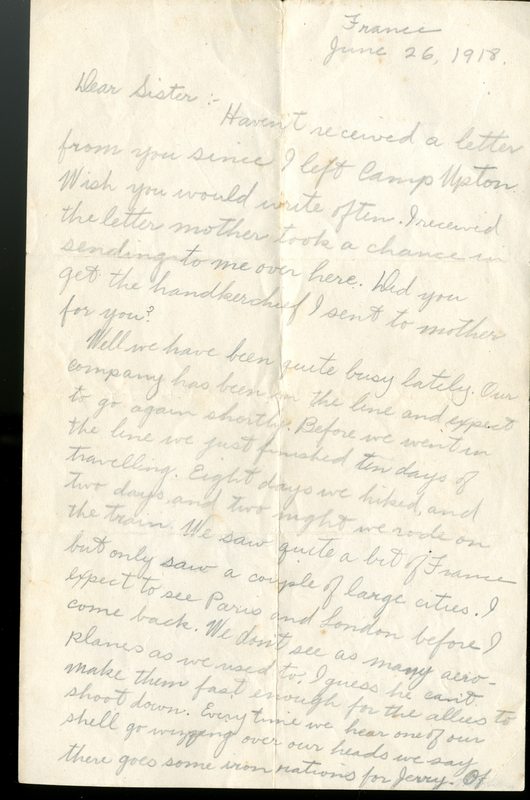 France
June 26, 1918.
Dear Sister :-
Haven't received a letter
from you since I left Camp Upton.
Wish you would write often. I received
the letter mother took a chance in
sending to me over here. Did you
get the handkerchief I sent to mother
for you?
Well we have been quite busy lately. Our
company has been in the line and expect
to go again shortly. Before we went in
the line we just finished ten days of
travelling. Eight days we hiked and
two days and two night we rode on
the train. We saw quite a bit of France
but only saw a couple of large cities. I
expect to see Paris and London before I
come back. We don't see as many aero-
planes as we used to. I guess he can't
make them fast enough for the allies to
shoot down. Every time we hear one of our
shell go wizzing over our heads we say
there goes some iron rations for Jerry. Of